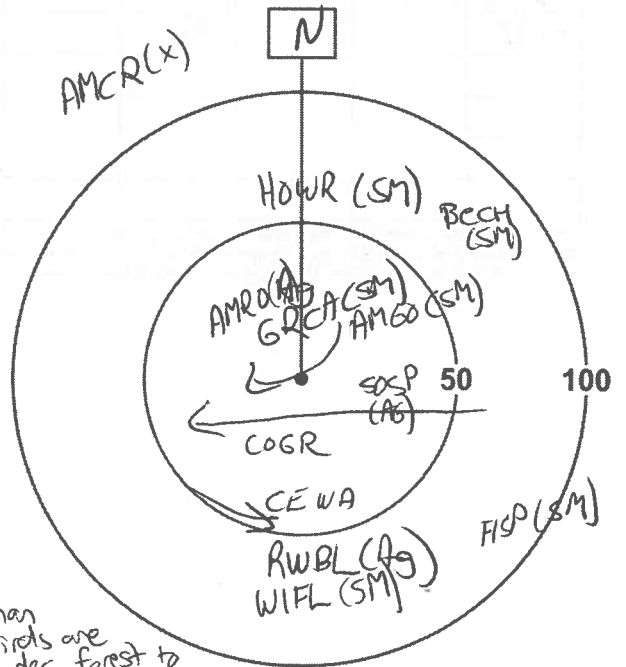 N
AMCR(X)
HOWR (SM)
BCCH
(SM)
AMRO(Ag)
GRCA(SM)
AMGO(SM)
SOSP
(AG)
50
100
COGR
CEWA
FISP(SM)
RWBL(Ag)
WIFL(SM)
han
irds are
dec. forest to